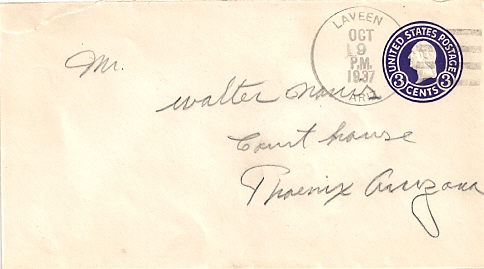 LAVEEN
OCT
9
P.M.
1937
ARIZ
UNITED STATES POSTAGE
3 CENTS 3
Mr.
Walter
Court house
Phoenix Arizona